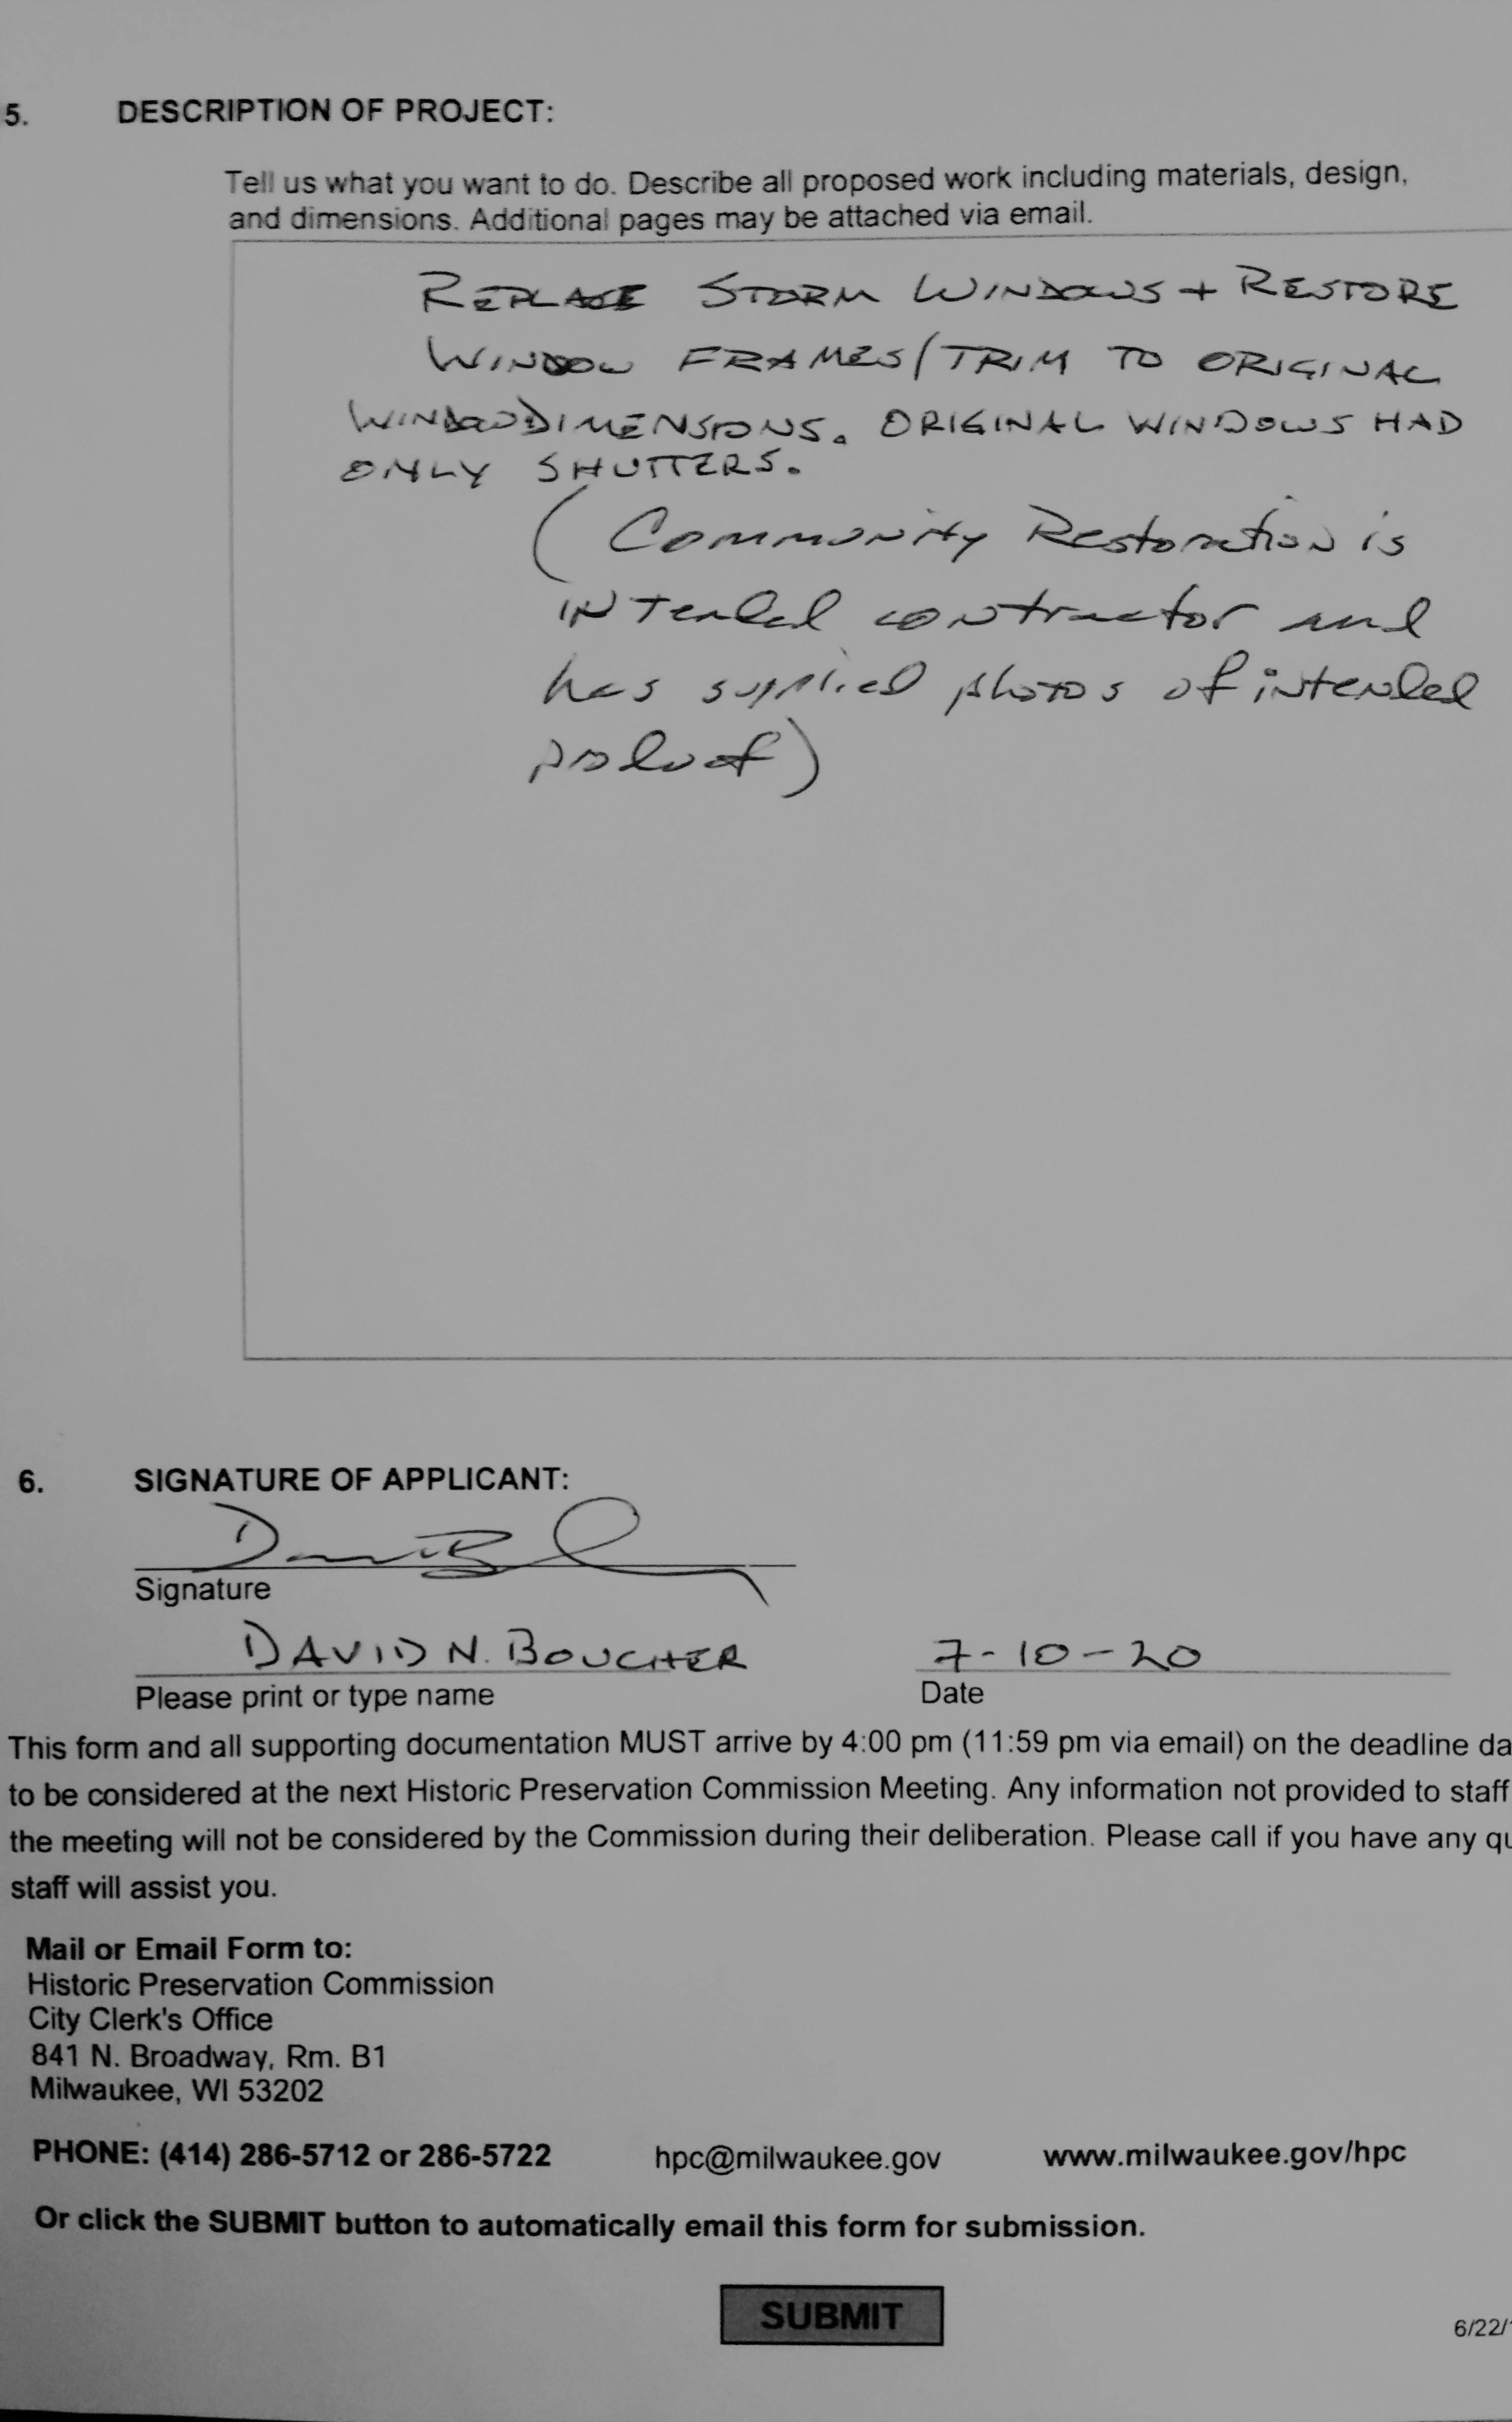 5. DESCRIPTION OF PROJECT:
Tell us what you want to do. Describe all proposed work including materials, design,
and dimensions. Additional pages may be attached via email.
REPLACE STORM WINDOWS + RESTORE
WINDOW FRAMES/TRIM TO ORIGINAL
WINDOW DIMENSIONS. ORIGINAL WINDOWS HAD
ONLY SHUTTERS.
(Community Restoration is
intended contractor and
has supplied photos of intended
product)
6. SIGNATURE OF APPLICANT:
Signature
DAVID N. BOUCHER 7-10-20
Please print or type name Date
This form and all supporting documentation MUST arrive by 4:00 pm (11:59 pm via email) on the deadline da
to be considered at the next Historic Preservation Commission Meeting. Any information not provided to staff
the meeting will not be considered by the Commission during their deliberation. Please call if you have any qu
staff will assist you.
Mail or Email Form to:
Historic Preservation Commission
City Clerk's Office
841 N. Broadway, Rm. B1
Milwaukee, WI 53202
PHONE: (414) 286-5712 or 286-5722 hpc@milwaukee.gov www.milwaukee.gov/hpc
Or click the SUBMIT button to automatically email this form for submission.
SUBMIT
6/22/